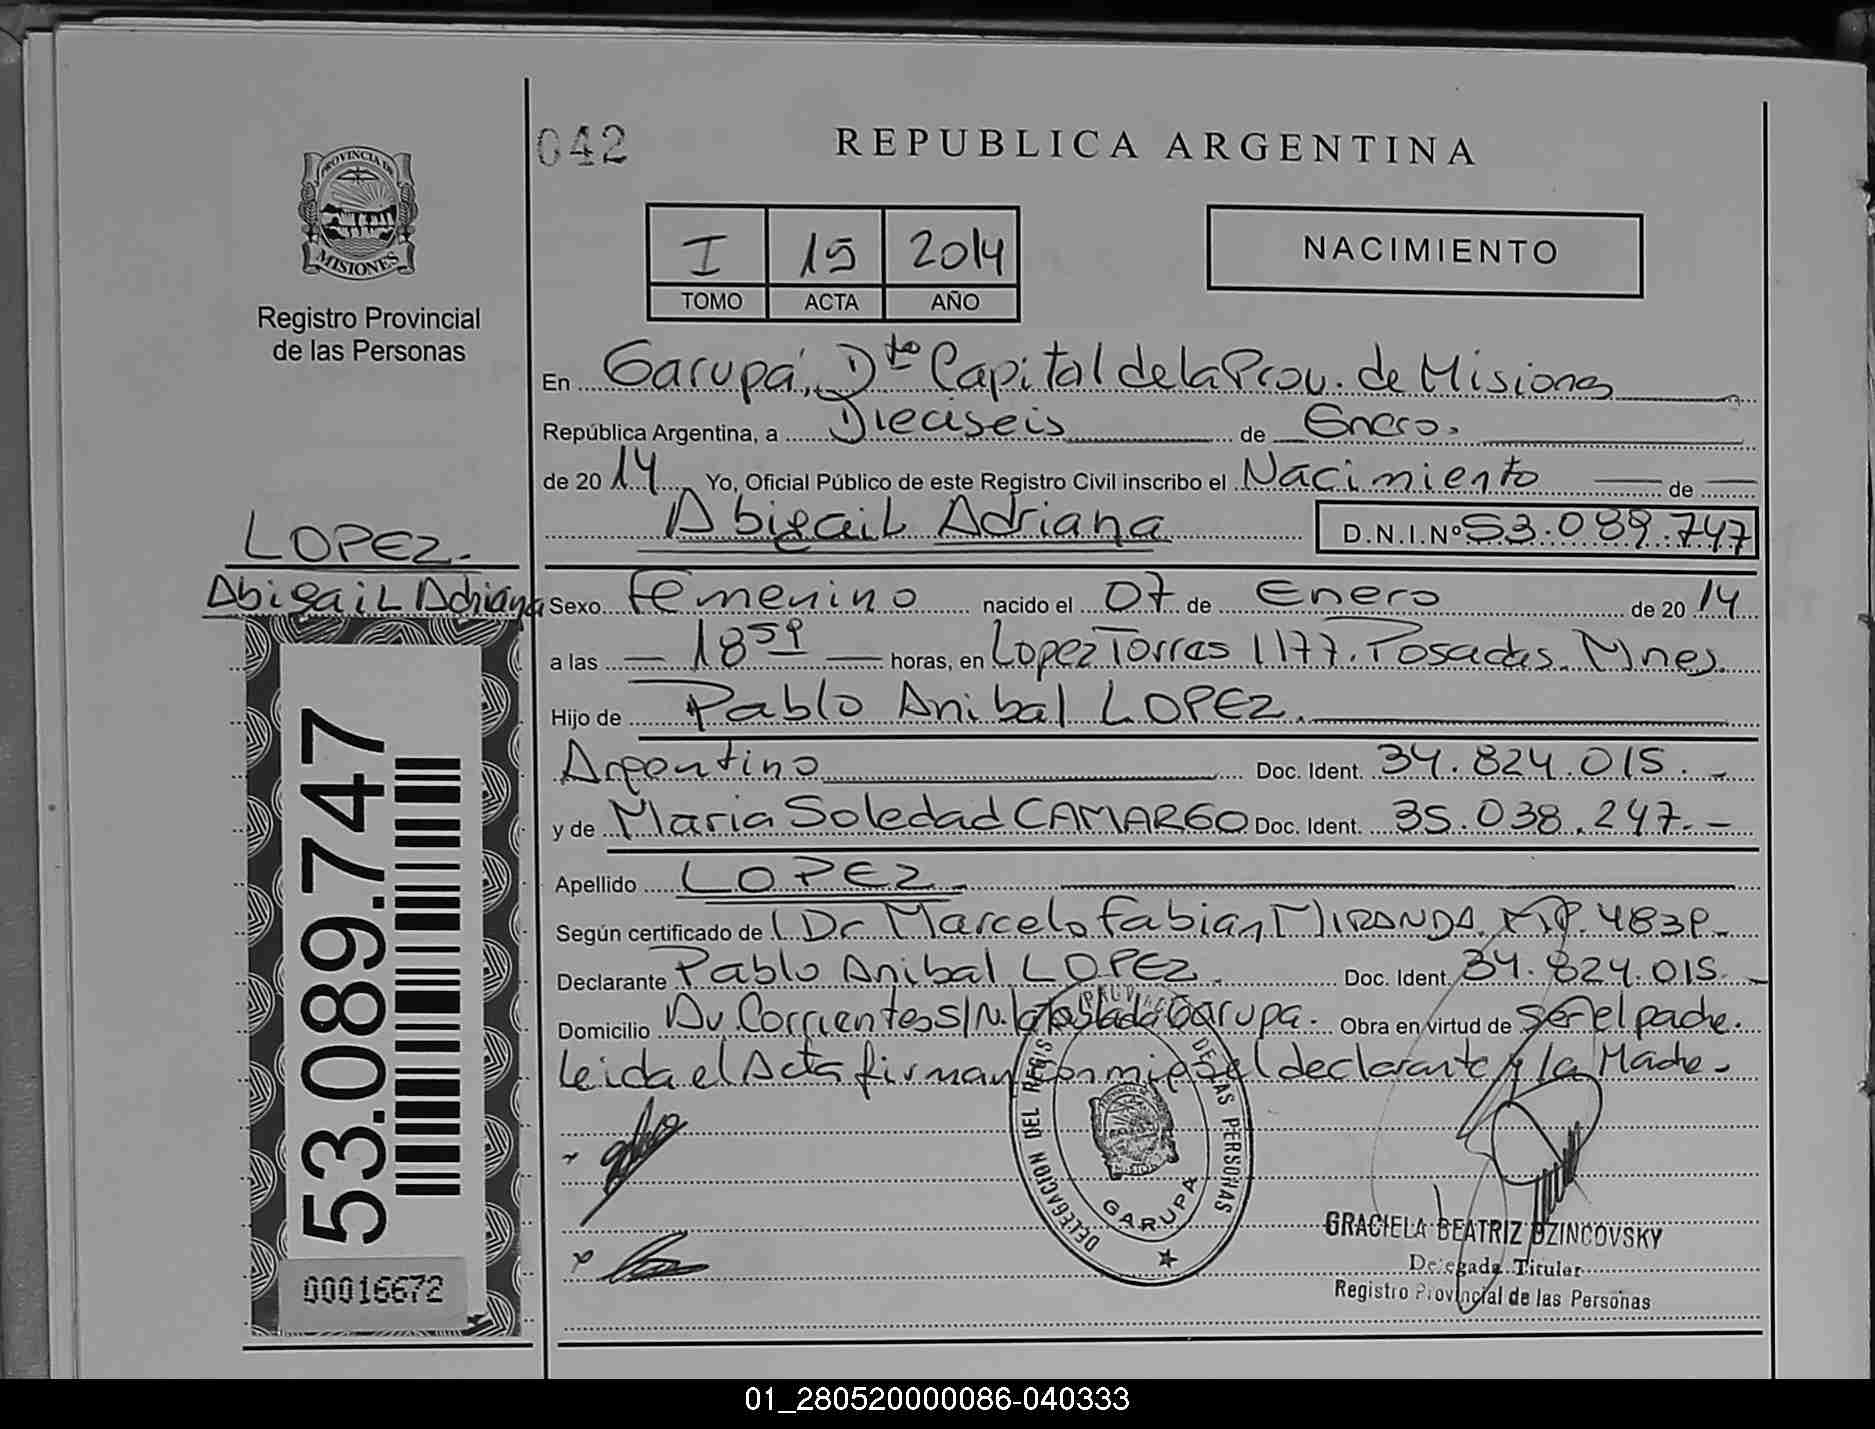 042
REPUBLICA ARGENTINA
PROVINCIA DE
MISIONES
Registro Provincial
de las Personas
I 15 2014
TOMO ACTA AÑO
NACIMIENTO
En Garupá, Dto Capital de la Prov. de Misiones
República Argentina, a Dieciseis de Enero.
de 2014 Yo, Oficial Público de este Registro Civil inscribo el Nacimiento de
Abigail Adriana D.N.I.Nº 53.089.747
LOPEZ.
Abigail Adriana
Sexo Femenino nacido el 07 de Enero de 2014
a las 18 59 horas, en Lopez Torres 1177. Posadas. Mnes.
Hijo de Pablo Anibal LOPEZ.
Argentino Doc. Ident. 34.824.015.-
y de Maria Soledad CAMARGO Doc. Ident. 35.038.247.-
Apellido LOPEZ.
Según certificado de Dr Marcelo Fabian MIRANDA. MP. 4839-
Declarante Pablo Anibal LOPEZ. Doc. Ident. 34.824.015.-
Domicilio Av. Corrientes S/N. Garupa. Obra en virtud de ser el padre.
Leida el Acta firman con migo el declarante y la Madre.
53.089.747
00016672
DELEGACION DEL REGIS PROVINCIAL DE LAS PERSONAS
MISIONES
GARUPA
GRACIELA BEATRIZ DZINCOVSKY
Delegada Titular
Registro Provincial de las Personas
01_280520000086-040333